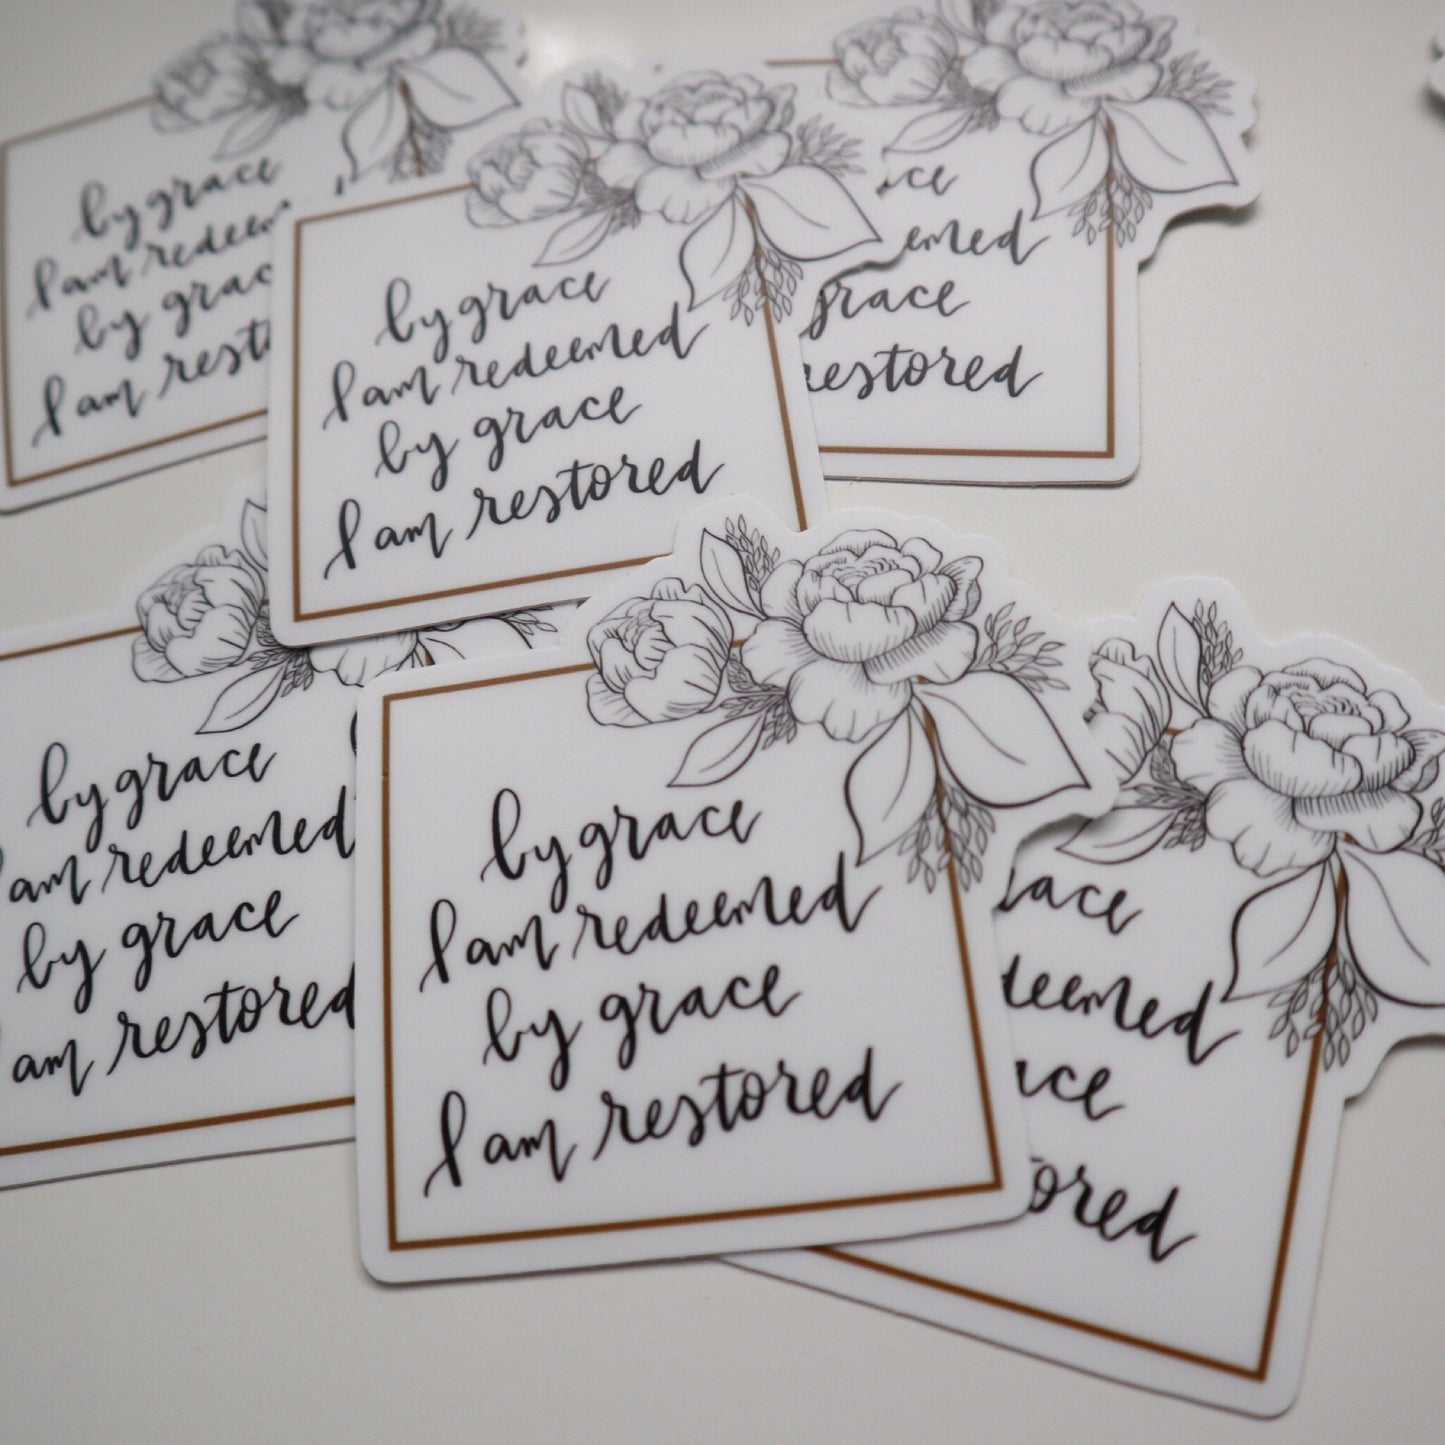 by grace
I am redeem
by grac
I am rest
by grace
I am redeemed
by grace
I am restored
ce
emed
grace
restored
by grace
am redeemed
by grace
am restored
by grace
I am redeemed
by grace
I am restored
ace
deemed
ace
ored